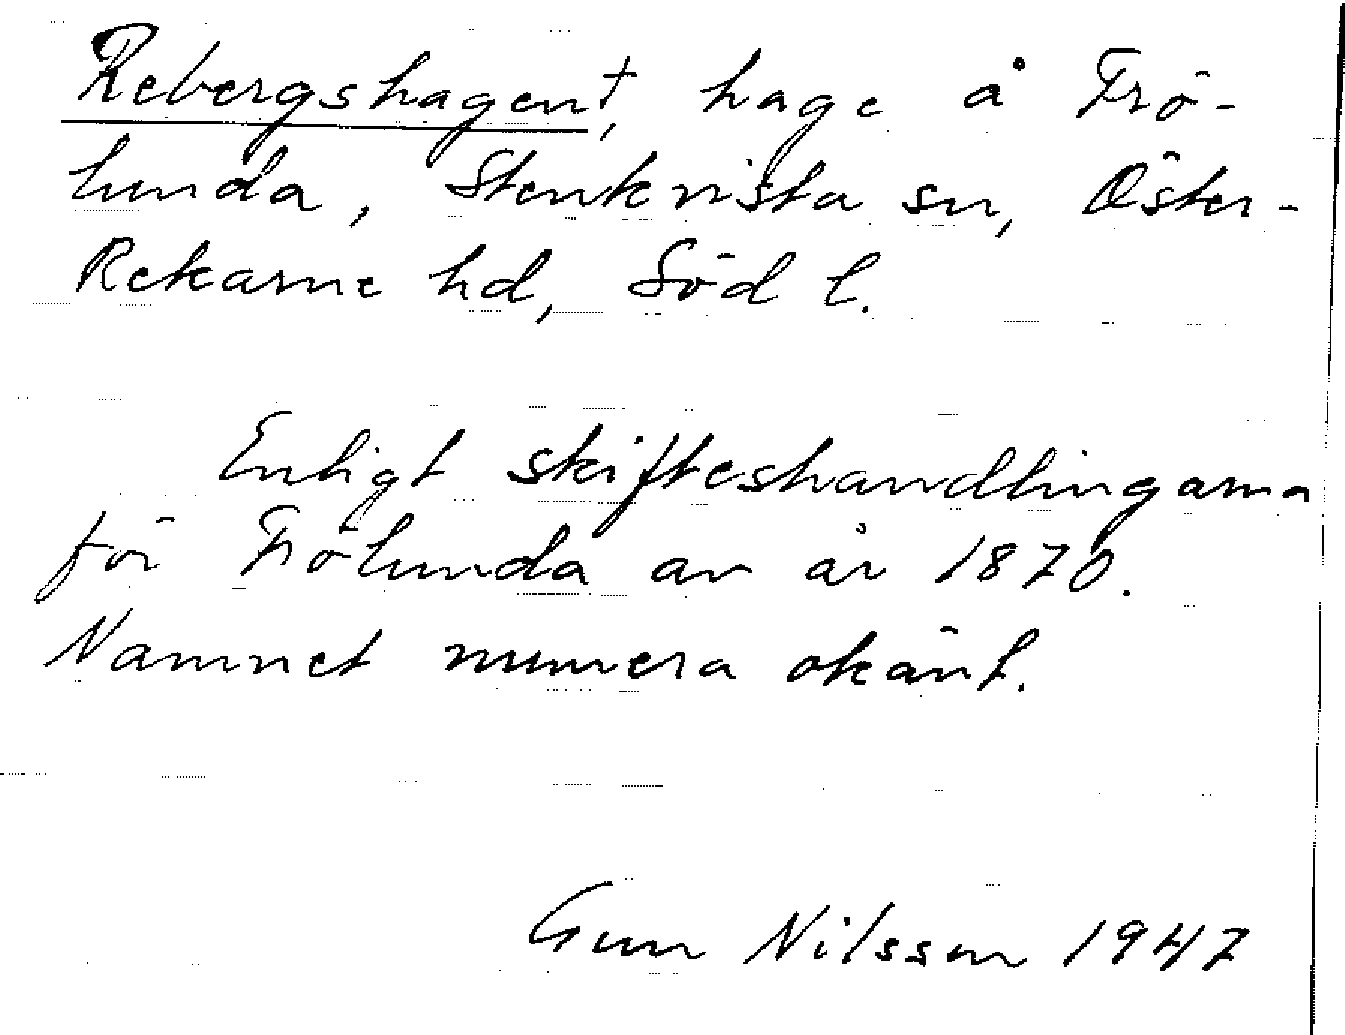 Rebergshagen†, hage å Frö-
lunda, Stenkvista sn, Öster-
Rekarne hd, Söd l.
Enligt skifteshandlingarna
för Frölunda av år 1870.
Namnet numera okänt.
Gun Nilsson 1947